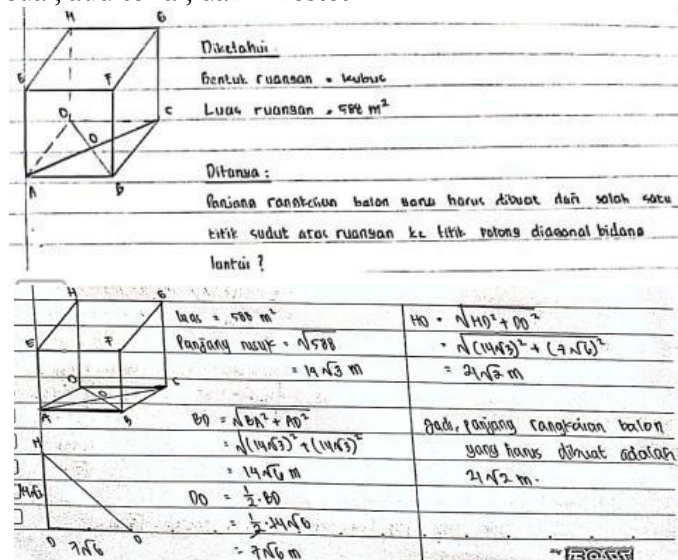 H G
Diketahui
E F
Bentuk ruangan = kubus
Luas ruangan = 588 m²
D C
O
A B
Ditanya :
Panjang rangkaian balon yang harus dibuat dari salah satu
titik sudut atas ruangan ke titik potong diagonal bidang
lantai ?
H G
E F
D C
O
A B
luas = 588 m²
Panjang rusuk = √588
= 14√3 m
BD = √BA² + AD²
= √(14√3)² + (14√3)²
= 14√6 m
DO = 1/2 . BD
= 1/2 . 14√6
= 7√6 m
H
14√3
D 7√6 O
HO = √HD² + DO²
= √(14√3)² + (7√6)²
= 21√2 m
Jadi, panjang rangkaian balon
yang harus dibuat adalah
21√2 m.